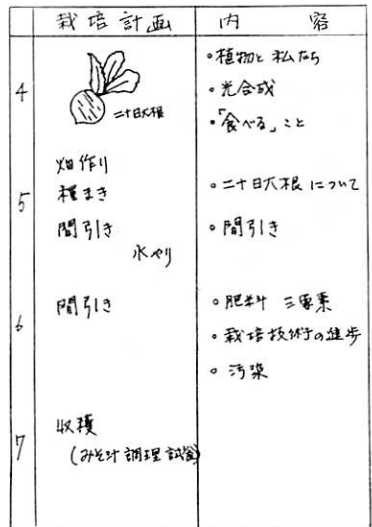 栽培計画 内容
4
二十日大根
・植物と私たち
・光合成
・「食べる」こと
5
畑作り
種まき
間引き
水やり
・二十日大根について
・間引き
6
間引き
・肥料 三要素
・栽培技術の進歩
・汚染
7
収穫
(みそ汁調理試食)